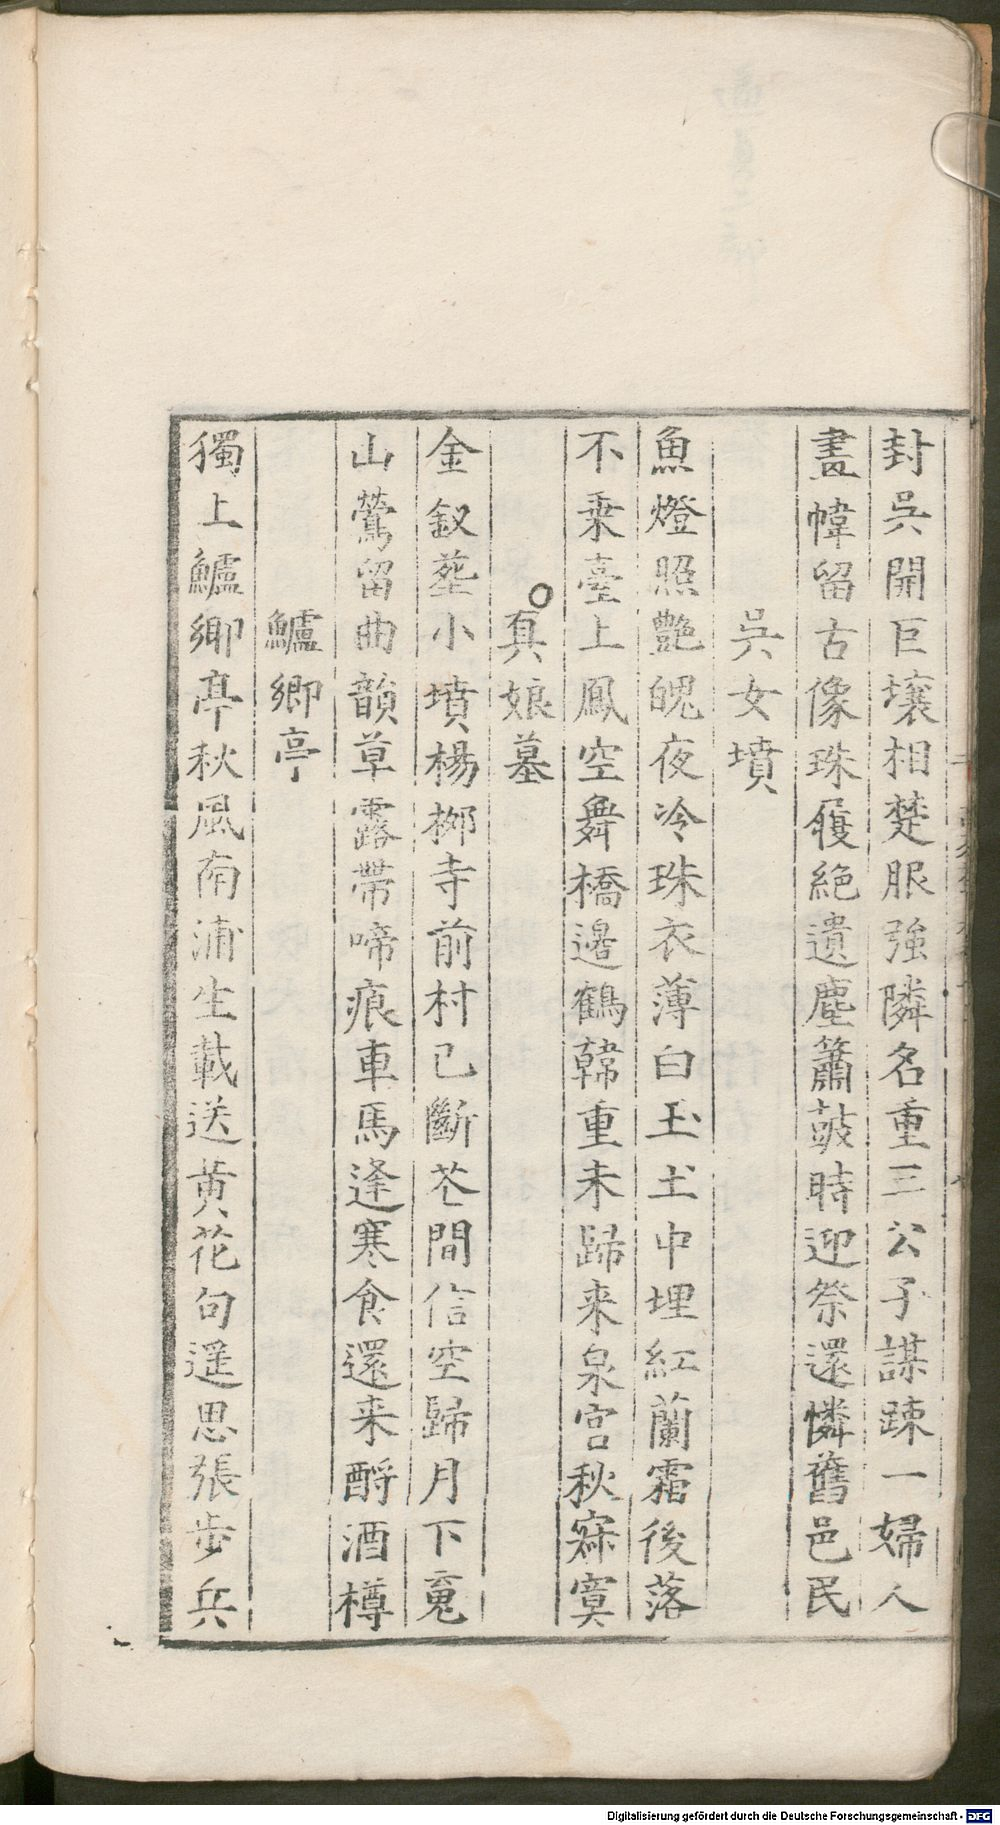 封吳開巨壤相楚服強隣名重三公子謀踈一婦人
畫幃留古像珠履絕遺塵簫鼓時迎祭還憐舊邑民
吳女墳
魚燈照艶魄夜冷珠衣薄白玉土中埋紅蘭霜後落
不乗臺上鳳空舞橋邉鶴韓重未歸来泉宮秋寂寞
真娘墓
金釵葬小墳楊柳寺前村已斷花間信空歸月下䰟
山鶯留曲韻草露帶啼痕車馬逢寒食還来酹酒樽
鱸鄉亭
獨上鱸鄉亭秋風南浦生載送黄花句遥思張步兵
Digitalisierung gefördert durch die Deutsche Forschungsgemeinschaft - DFG